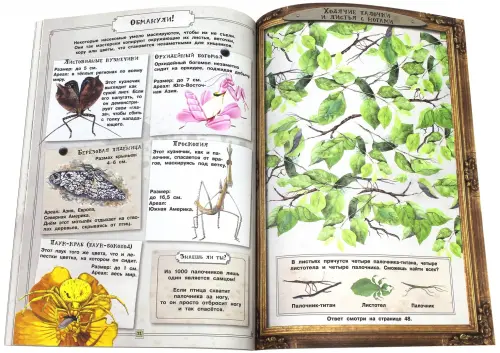 Обманули!
Некоторые насекомые умело маскируются, чтобы их не съели.
Они как мастерски копируют окружающие их листья, веточки,
кору или цветы, что становятся незаметными для хищников.
Листовидные кузнечики
Размер: до 5 см.
Ареал: в тёплых регионах по всему
миру.
Этот кузнечик
выглядит как
сухой лист. Если
его напугать, то
он демонстри-
рует свои «гла-
за», чтобы сбить
с толку напада-
ющего.
Орхидейный богомол
Орхидейный богомол незаметно
сидит на орхидее, поджидая добычу.
Размер: до 7 см.
Ареал: Юго-Восточ-
ная Азия.
Берёзовая пяденица
Размах крыльев:
4-6 см.
Ареал: Азия, Европа,
Северная Америка.
Днём этот мотылёк отдыхает на ство-
лах деревьев, скрываясь от птиц.
Проскопия
Этот кузнечик, как и па-
лочник, спасается от вра-
гов, маскируясь под ветку.
Размер:
до 16,5 см.
Ареал:
Южная Америка.
Паук-краб (паук-бокоход)
Этот паук того же цвета, что и ле-
пестки цветка, на котором он сидит.
Размер: до 1 см.
Ареал: весь мир.
Знаешь ли ты?
Из 1000 палочников лишь
один является самцом!
Если птица схватит
палочника за ногу,
то он просто отбросит ногу
и так спасётся.
Ходячие палочки
и листья с ногами
В листьях прячутся четыре палочника-титана, четыре
листотела и четыре палочника. Сможешь найти всех?
Палочник-титан
Листотел
Палочник
Ответ смотри на странице 48.